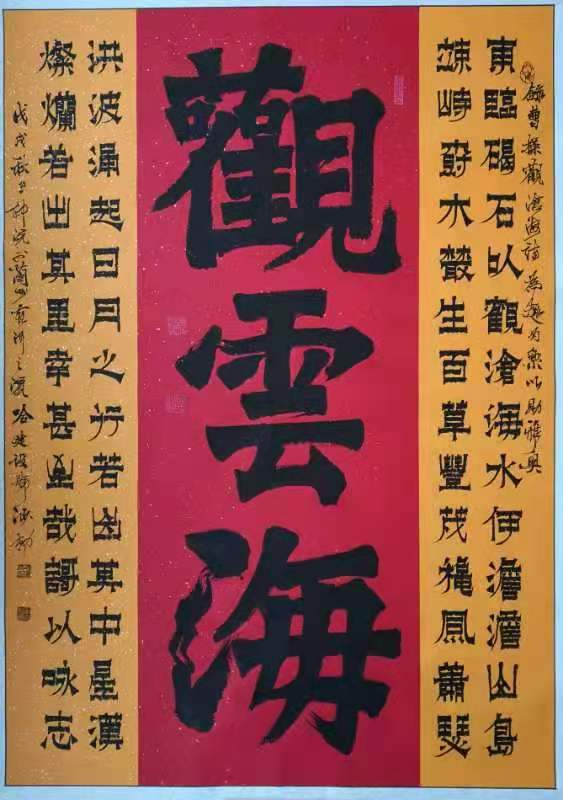 錄曹操觀滄海詩以助雅興
東臨碣石以觀滄海水伊澹澹山島
竦峙尌木叢生百草豐茂穐風蕭瑟
觀雲海
洪波涌起日月之行若出其中星漢
燦爛若出其里幸甚至哉謌以咏志
戊戌秋月於蘭山之濱